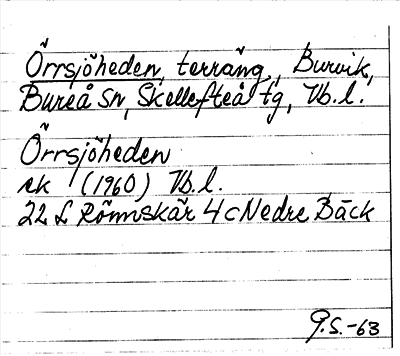 Örrsjöheden, terräng, Burvik,
Bureå sn, Skellefteå tg, Vb.l.
Örrsjöheden
ek (1960) Vb.l.
22 L Rönnskär 4c Nedre Bäck
G.S.-63